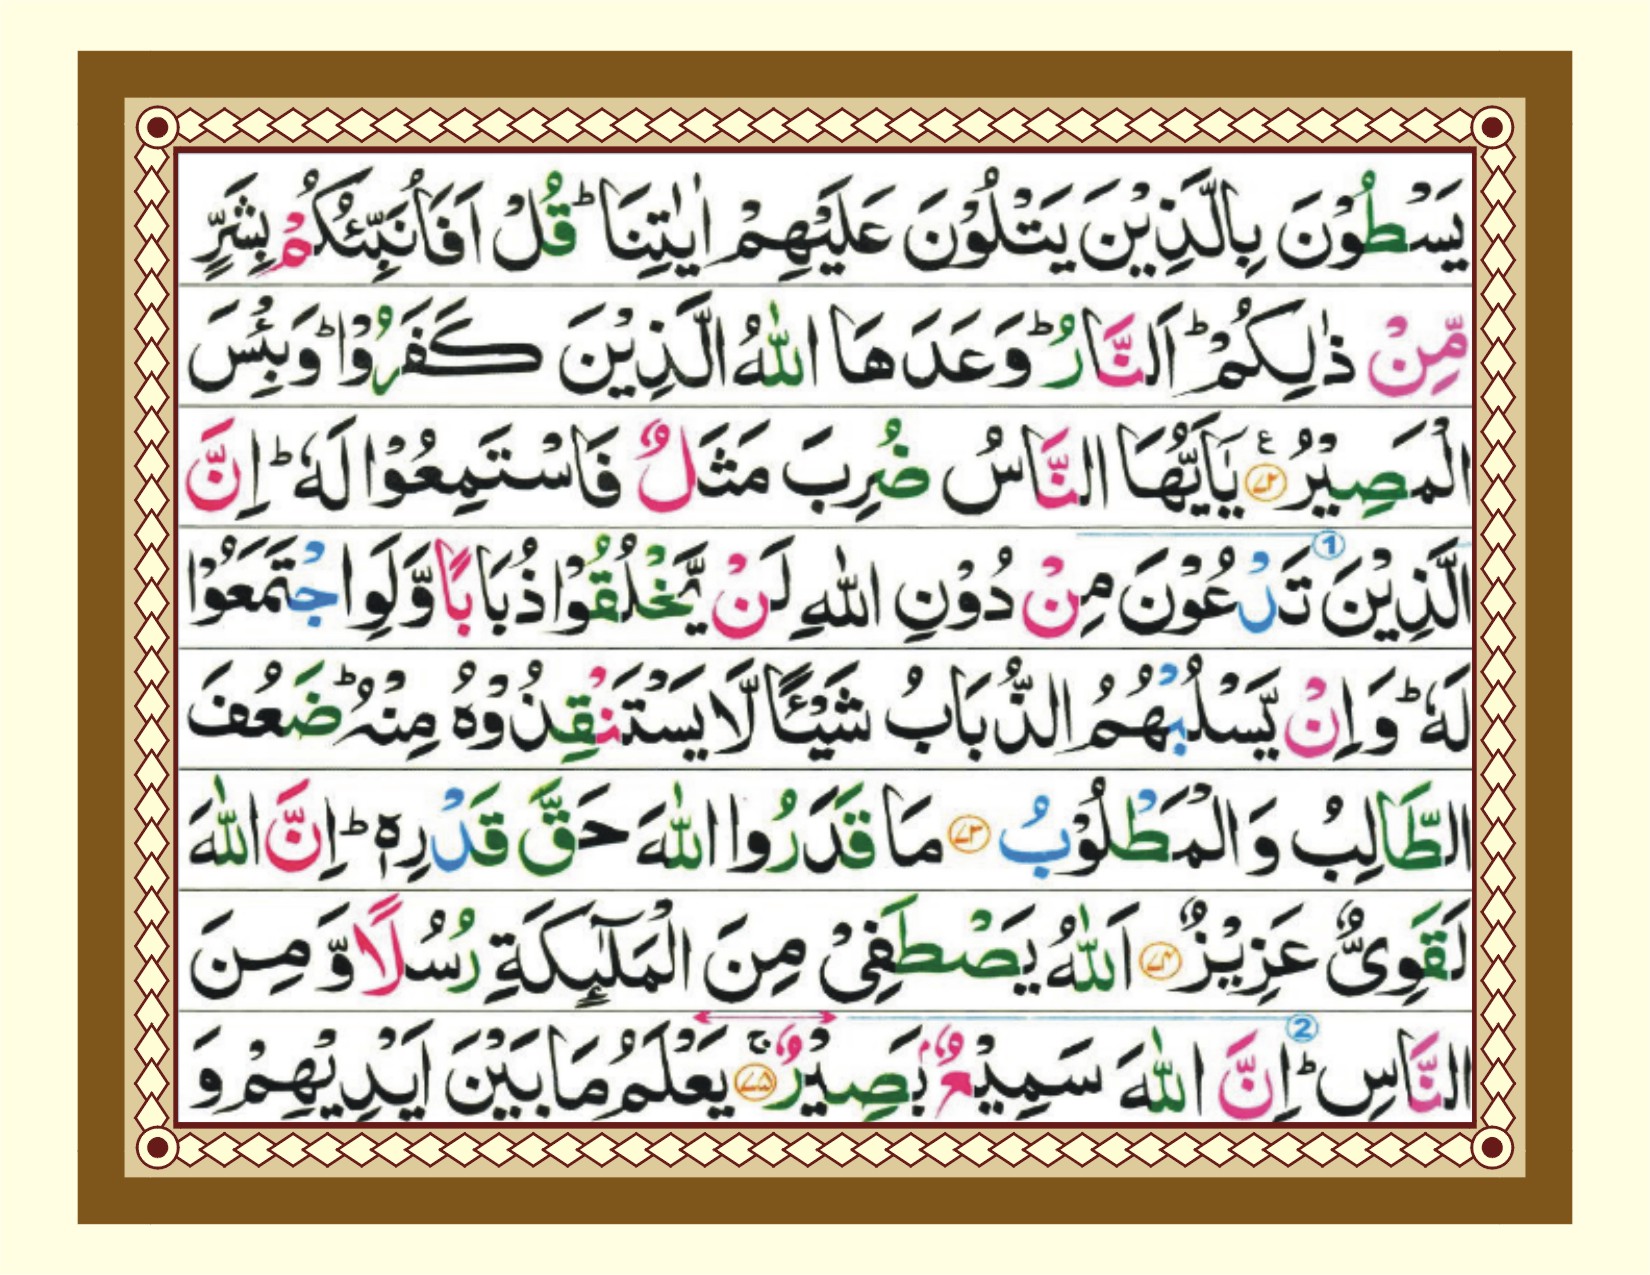 يَسْطُوْنَ بِالَّذِيْنَ يَتْلُوْنَ عَلَيْهِمْ اٰيٰتِنَا ؕ قُلْ اَفَاُنَبِّئُكُمْ بِشَرٍّ
مِّنْ ذٰلِكُمْ ؕ اَلنَّارُ ؕ وَعَدَهَا اللّٰهُ الَّذِيْنَ كَفَرُوْا ؕ وَبِئْسَ
الْمَصِيْرُ ع ﴿۷۲﴾ يٰۤاَيُّهَا النَّاسُ ضُرِبَ مَثَلٌ فَاسْتَمِعُوْا لَهٗ ؕ اِنَّ
① الَّذِيْنَ تَدْعُوْنَ مِنْ دُوْنِ اللّٰهِ لَنْ يَّخْلُقُوْا ذُبَابًا وَّلَوِ اجْتَمَعُوْا
لَهٗ ؕ وَاِنْ يَّسْلُبْهُمُ الذُّبَابُ شَيْـًٔا لَّا يَسْتَنْقِذُوْهُ مِنْهُ ؕ ضَعُفَ
الطَّالِبُ وَالْمَطْلُوْبُ ﴿۷۳﴾ مَا قَدَرُوا اللّٰهَ حَقَّ قَدْرِهٖ ؕ اِنَّ اللّٰهَ
لَقَوِىٌّ عَزِيْزٌ ﴿۷۴﴾ اَللّٰهُ يَصْطَفِىْ مِنَ الْمَلٰٓئِكَةِ رُسُلًا وَّمِنَ
② النَّاسِ ؕ اِنَّ اللّٰهَ سَمِيْعٌۢ بَصِيْرٌ ۚ ﴿۷۵﴾ يَعْلَمُ مَا بَيْنَ اَيْدِيْهِمْ وَ